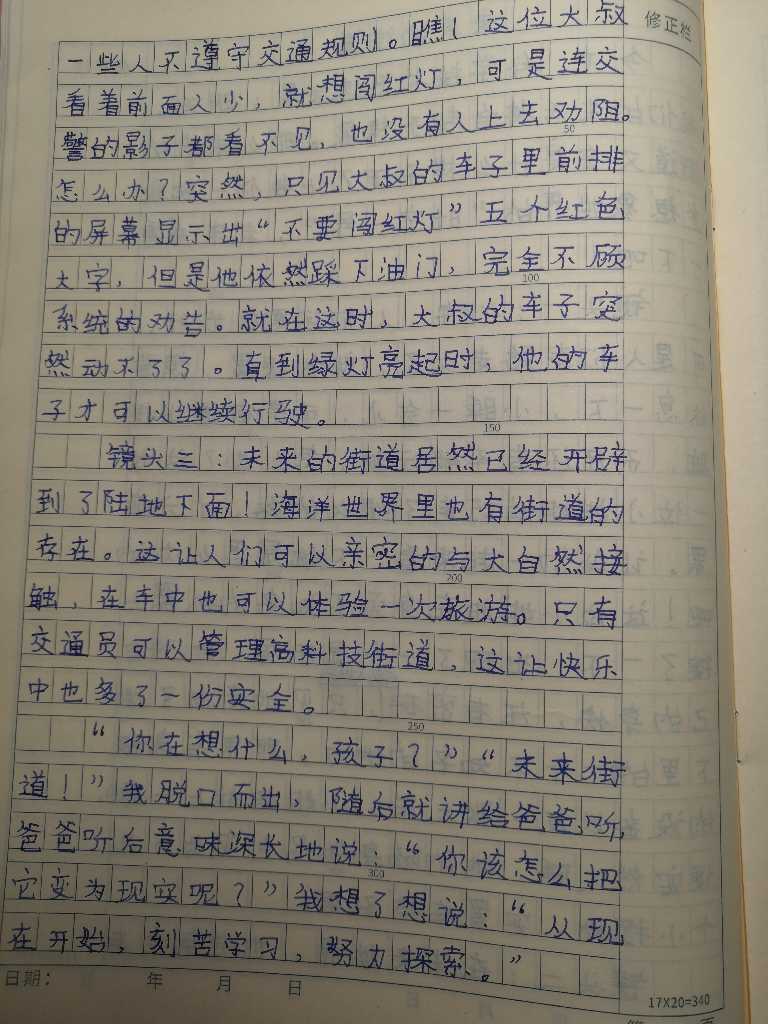 一些人不遵守交通规则。瞧！这位大叔
修正栏
看着前面人少，就想闯红灯，可是连交
警的影子都看不见，也没有人上去劝阻。
50
怎么办？突然，只见大叔的车子里前排
的屏幕显示出“不要闯红灯”五个红色
大字，但是他依然踩下油门，完全不顾
100
系统的劝告。就在这时，大叔的车子突
然动不了了。直到绿灯亮起时，他的车
子才可以继续行驶。
150
镜头三：未来的街道居然已经开辟
到了陆地下面！海洋世界里也有街道的
存在。这让人们可以亲密的与大自然接
200
触，在车中也可以体验一次旅游。只有
交通员可以管理高科技街道，这让快乐
中也多了一份安全。
250
“你在想什么，孩子？”“未来街
道！”我脱口而出，随后就讲给爸爸听，
爸爸听后意味深长地说：“你该怎么把
300
它变为现实呢？”我想了想说：“从现
在开始，刻苦学习，努力探索。”
日期： 年 月 日
17X20=340